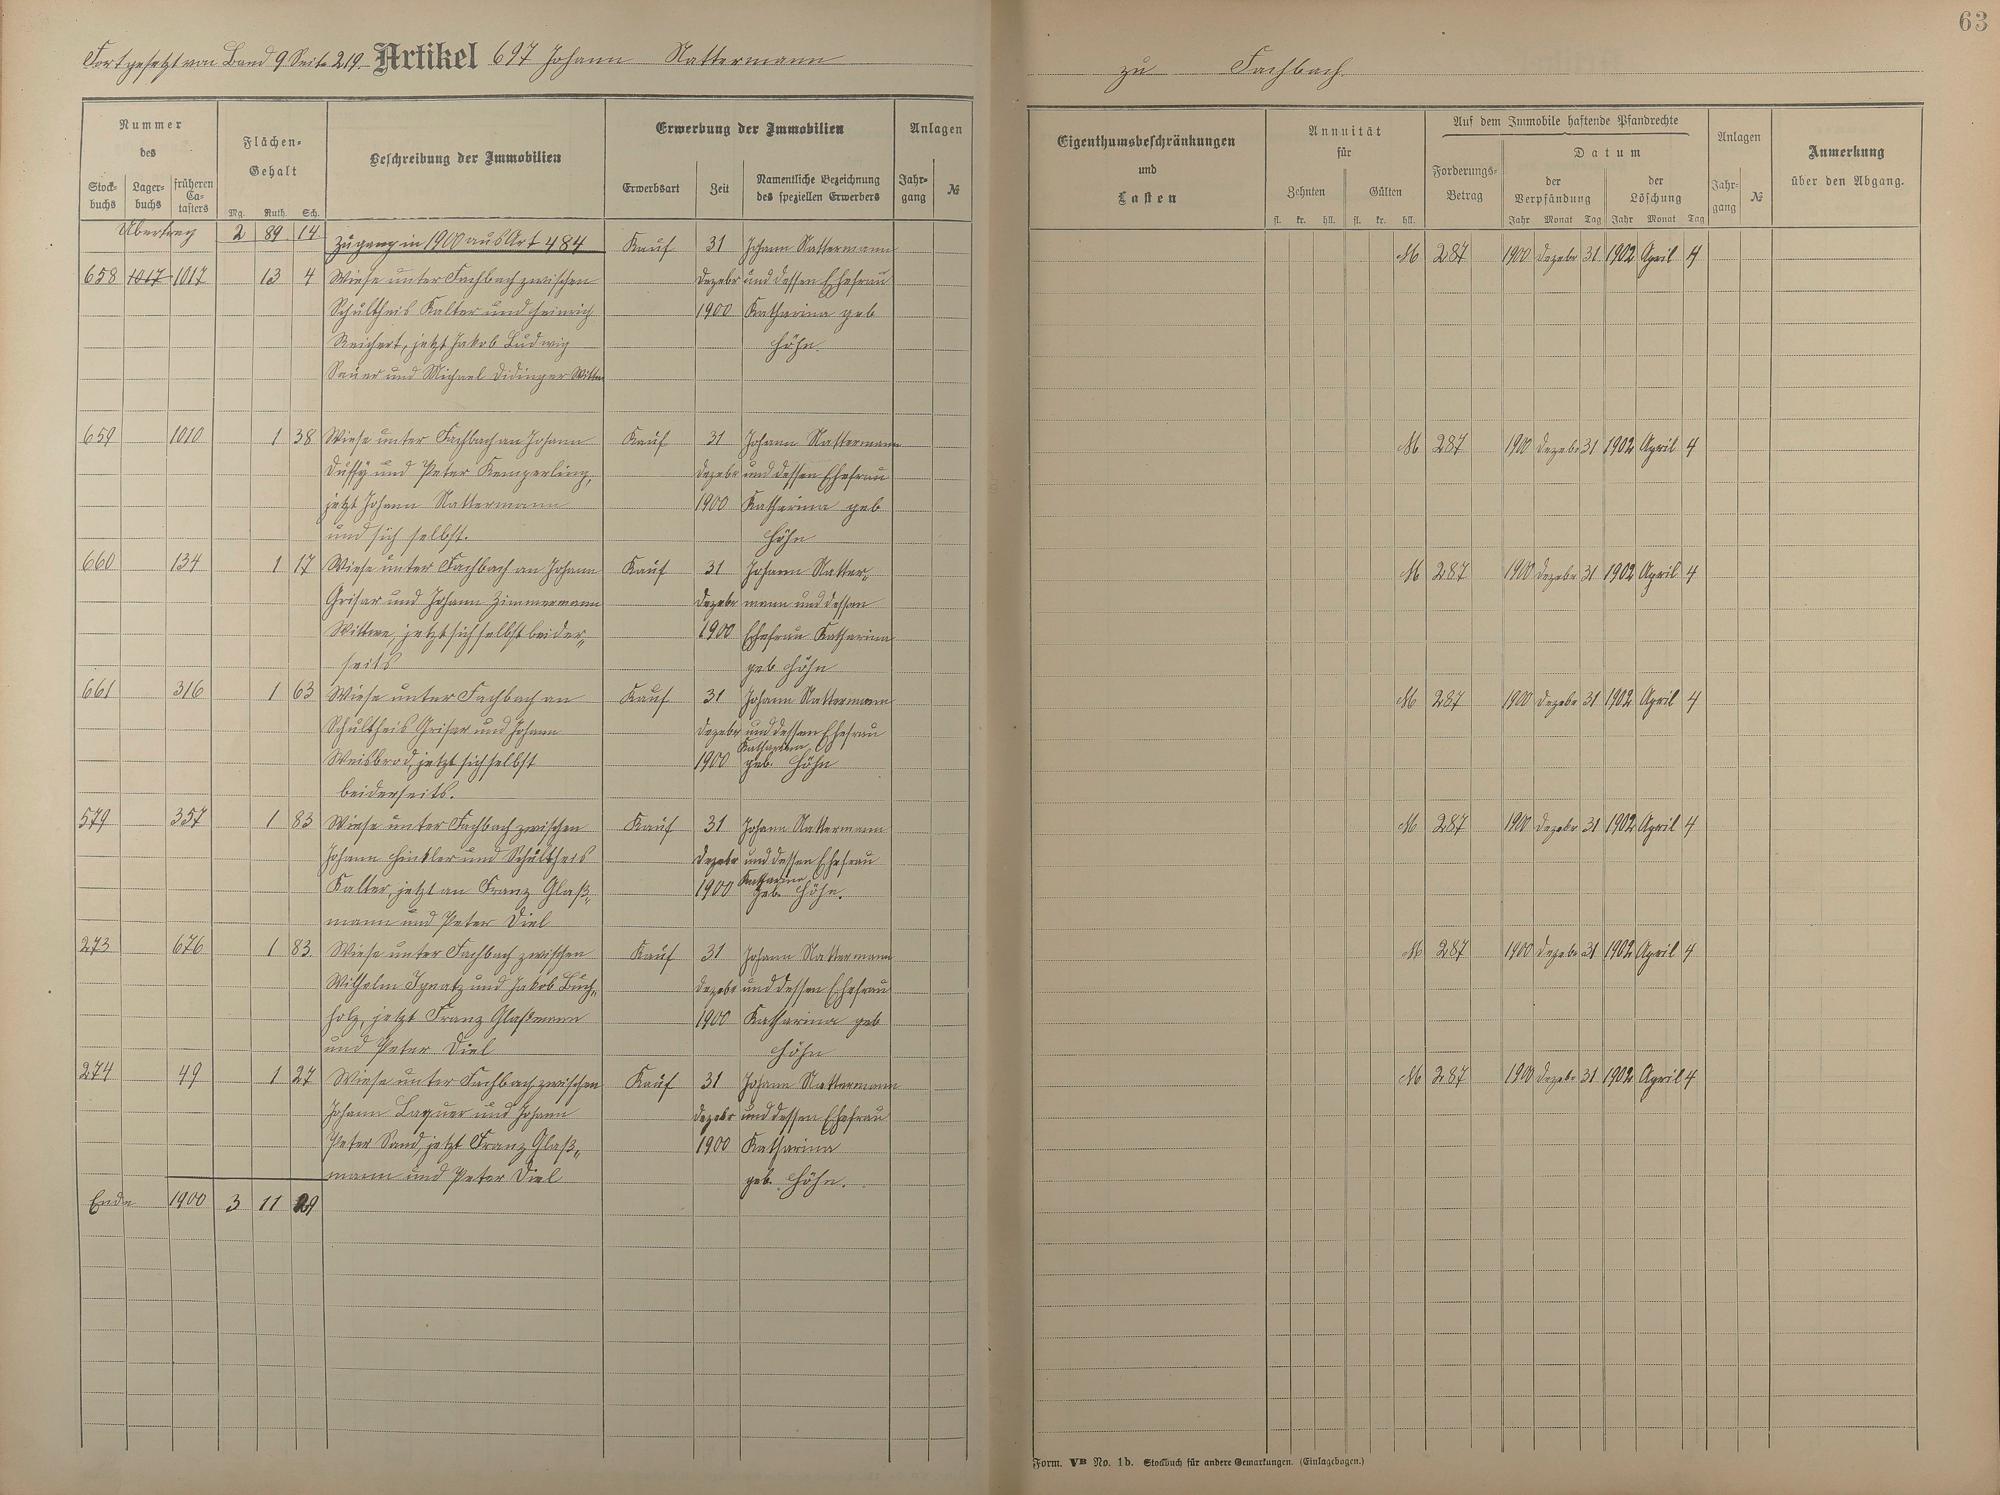 63
Fortgesetzt von Band 9 Seite 219. Artikel 697 Johann Nattermann
zu Fachbach.
Nummer des
Stock-buchs Lager-buchs früheren Ca-tasters
Flächen-Gehalt
Mg. Ruth. Sch.
Beschreibung der Immobilien
Erwerbung der Immobilien
Erwerbsart Zeit Namentliche Bezeichnung des speziellen Erwerbers
Anlagen
Jahr-gang №
Eigenthumsbeschränkungen und Lasten
Annuität für
Zehnten Gülten
fl. kr. hll. fl. kr. hll.
Auf dem Immobile haftende Pfandrechte
Forderungs-Betrag
Datum
der Verpfändung der Löschung
Jahr Monat Tag Jahr Monat Tag
Anlagen
Jahr-gang №
Anmerkung über den Abgang.
Übertrag 2 89 14 Zugang in 1900 aus Art 484 Kauf 31 Johann Nattermann M 287 1900 Dezebr 31. 1902 April 4
658 1017 1017 13 4 Wiese unter Fachbach zwischen Dezebr und dessen Ehefrau
Schultheis Kalter und Heinrich 1900 Katharina geb
Reichert, jetzt Jakob Ludwig Höhn.
Sauer und Michael Didinger Wittwe
659 1010 1 38 Wiese unter Fachbach an Johann Kauf 31 Johann Nattermann M 287 1900 Dezebr 31 1902 April 4
Duffy und Peter Kemperling, Dezebr und dessen Ehefrau
jetzt Johann Nattermann 1900 Katharina geb
und sich selbst. Höhn
660 134 1 17 Wiese unter Fachbach an Johann Kauf 31 Johann Natter- M 287 1900 Dezebr 31 1902 April 4
Grisar und Johann Zimmermann Dezebr mann und dessen
Wittwe, jetzt sich selbst beider- 1900 Ehefrau Katharina
seits geb Höhn
661 316 1 63 Wiese unter Fachbach an Kauf 31 Johann Nattermann M 287 1900 Dezebr 31 1902 April 4
Schultheis Grisar und Johann Dezebr und dessen Ehefrau
Weisbrod, jetzt sich selbst 1900 Katharina geb. Höhn
beiderseits.
579 357 1 83 Wiese unter Fachbach zwischen Kauf 31 Johann Nattermann M 287 1900 Dezebr 31 1902 April 4
Johann Hinkler und Schultheis Dezebr und dessen Ehefrau
Kalter, jetzt an Franz Glaß- 1900 Katharina geb. Höhn.
mann und Peter Diel
273 676 1 83 Wiese unter Fachbach zwischen Kauf 31 Johann Nattermann M 287 1900 Dezebr 31 1902 April 4
Wilhelm Ignatz und Jakob Buch- Dezebr und dessen Ehefrau
holz, jetzt Franz Glaßmann 1900 Katharina geb
und Peter Diel Höhn
274 49 1 27 Wiese unter Fachbach zwischen Kauf 31 Johann Nattermann M 287 1900 Dezebr 31 1902 April 4
Johann Laquer und Johann Dezebr und dessen Ehefrau
Peter Sand, jetzt Franz Glaß- 1900 Katharina
mann und Peter Diel geb. Höhn.
Ende 1900 3 11 29
Form. VB No. 1b. Stockbuch für andere Gemarkungen. (Einlagebogen.)